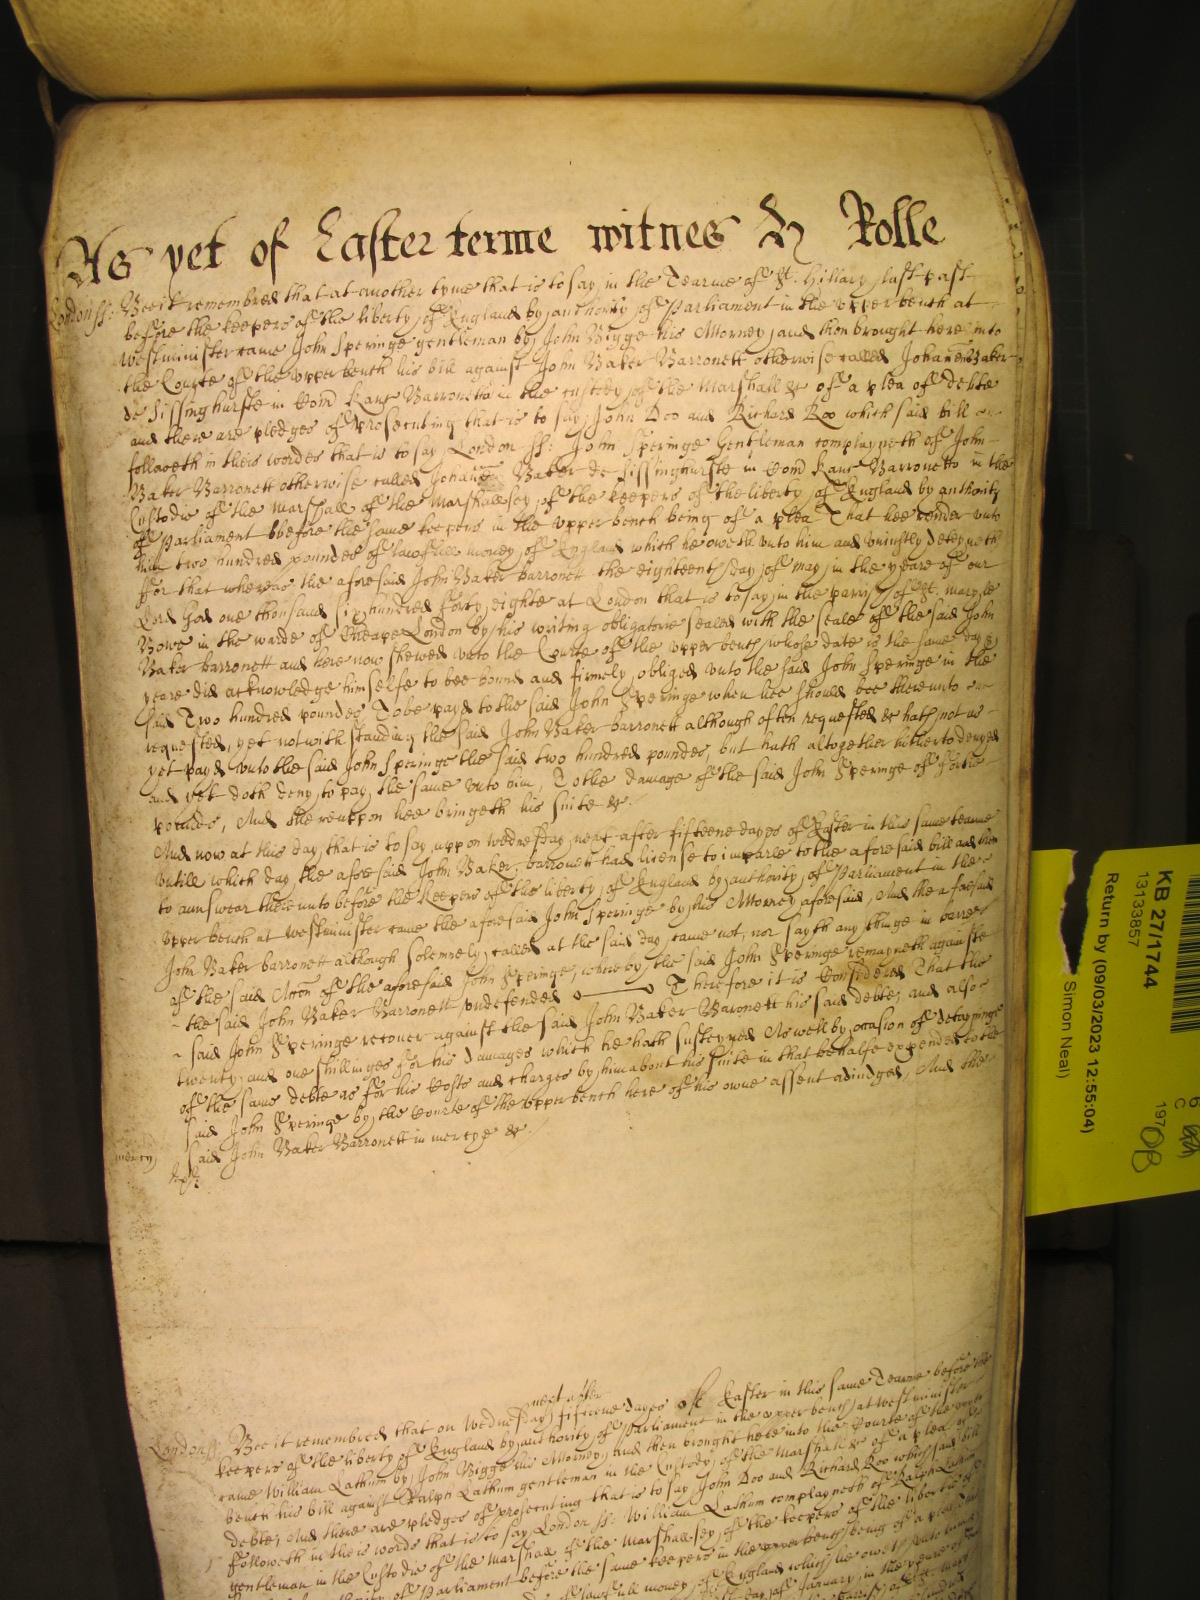 As yet of Easter terme witnes H Rolle
London ss: Bee it remembred that at another tyme that is to say, in the Tearme of St. Hillary last past
before the keepers of the liberty of England by authority of Parliament in the upper bench at
Westminister came John Speringe gentleman by John Bigge his Attorney, and then brought here into
the Courte of the upper bench his bill against John Baker Barronett otherwise called Johanem Baker
de Sissinghurste in Com Kanc Barronettu in the custody of the Marshall &c of a plea of debte
and there are pledges of prosecuting that is to say, John Doo and Richard Roo which said bill
followeth in theis wordes that is to say, London ss: John Speringe Gentleman complayneth of John
Baker Barronett otherwise called Johanem Baker de Sissinghurste in Com Kanc Barronettu in the
Custodie of the Marshall of the Marshallsey of the keepers of the liberty of England by authority
of Parliament before the same keepers in the upper bench being of a plea That hee render unto
him two hundred poundes of lawfull money of England which he oweth unto him and uniustly deteyneth
ffor that whereas the aforesaid John Baker barronett the eighteenth day of may, in the yeare of our
Lord God one thousand six hundred forty eighte at London that is to say, in the parrish of St. mary le
Bowe in the warde of Cheape London by his writing obligatorie sealed with the seale of the said John
Baker barronett and here now shewed unto the Courte of the upper bench whose date is the same day &
yeare did acknowledge himselfe to bee bound and firmely obliged unto the said John Speringe in the
said Two hundred poundes To be payd to the said John Speringe when hee should bee thereunto
requested, yet notwithstanding the said John Baker barronett although often requested &c hath not as
yet payd unto the said John Speringe the said two hundred poundes, but hath altogether hitherto denyed
and yet doth deny, to pay, the same unto him, To the damage of the said John Speringe of fortie
poundes, And thereuppon hee bringeth his suite &c.
And now at this day, that is to say, uppon wednesday next after fifteene dayes of Easter in this same tearme
untill which day, the aforesaid John Baker, barronett had license to imparle to the aforesaid bill and then
to aunswear thereunto before the keepers of the liberty of England by authority of Parliament in the
upper bench at Westminister came the aforesaid John Speringe by his Attorney aforesaid, And the aforesaid
John Baker barronett although solemnely called at the said day came not, nor sayth any thinge in barre
of the said Accon of the aforesaid John Speringe, whereby the said John Speringe remayneth againste
the said John Baker Barronett undefended Therefore it is Considered That the
said John Speringe recover against the said John Baker Baronett his said debte, and also
twenty and one shillinges for his damages which he hath susteyned Aswell by occasion of detayninge
of the same debte as for his Costs and charges by him about his suite in that behalfe expended to the
said John Speringe by the Courte of the upper bench here of his owne assent adiudged, And the
mercy said John Baker Barronett in mercye &c.
London ss: Bee it remembred that on Wednesday next after fifteene dayes of Easter in this same Tearme before the
keepers of the liberty of England by authority of Parliament in the upper bench at westminister
came William Lathum by John Bigge his Attorney, And then brought here into the Courte of the upper
bench his bill against Ralph Lathum gentleman in the Custody of the Marshall &c of a plea of
debte, And there are pledges of prosecuting that is to say John Doo and Richard Roo which said bill
followeth in theis words that is to say, London ss: William Lathum complayneth of Ralph Lathum
gentleman in the Custodie of the Marshall of the Marshallsey of the keepers of the liberty of
of Parliament before the same keepers in the upper bench being of a plea
of lawfull money of England which he oweth unto him
day of January, in the yeare of
KB 27/1744
13133857
Return by (09/03/2023 12:55:04)
Simon Neal)